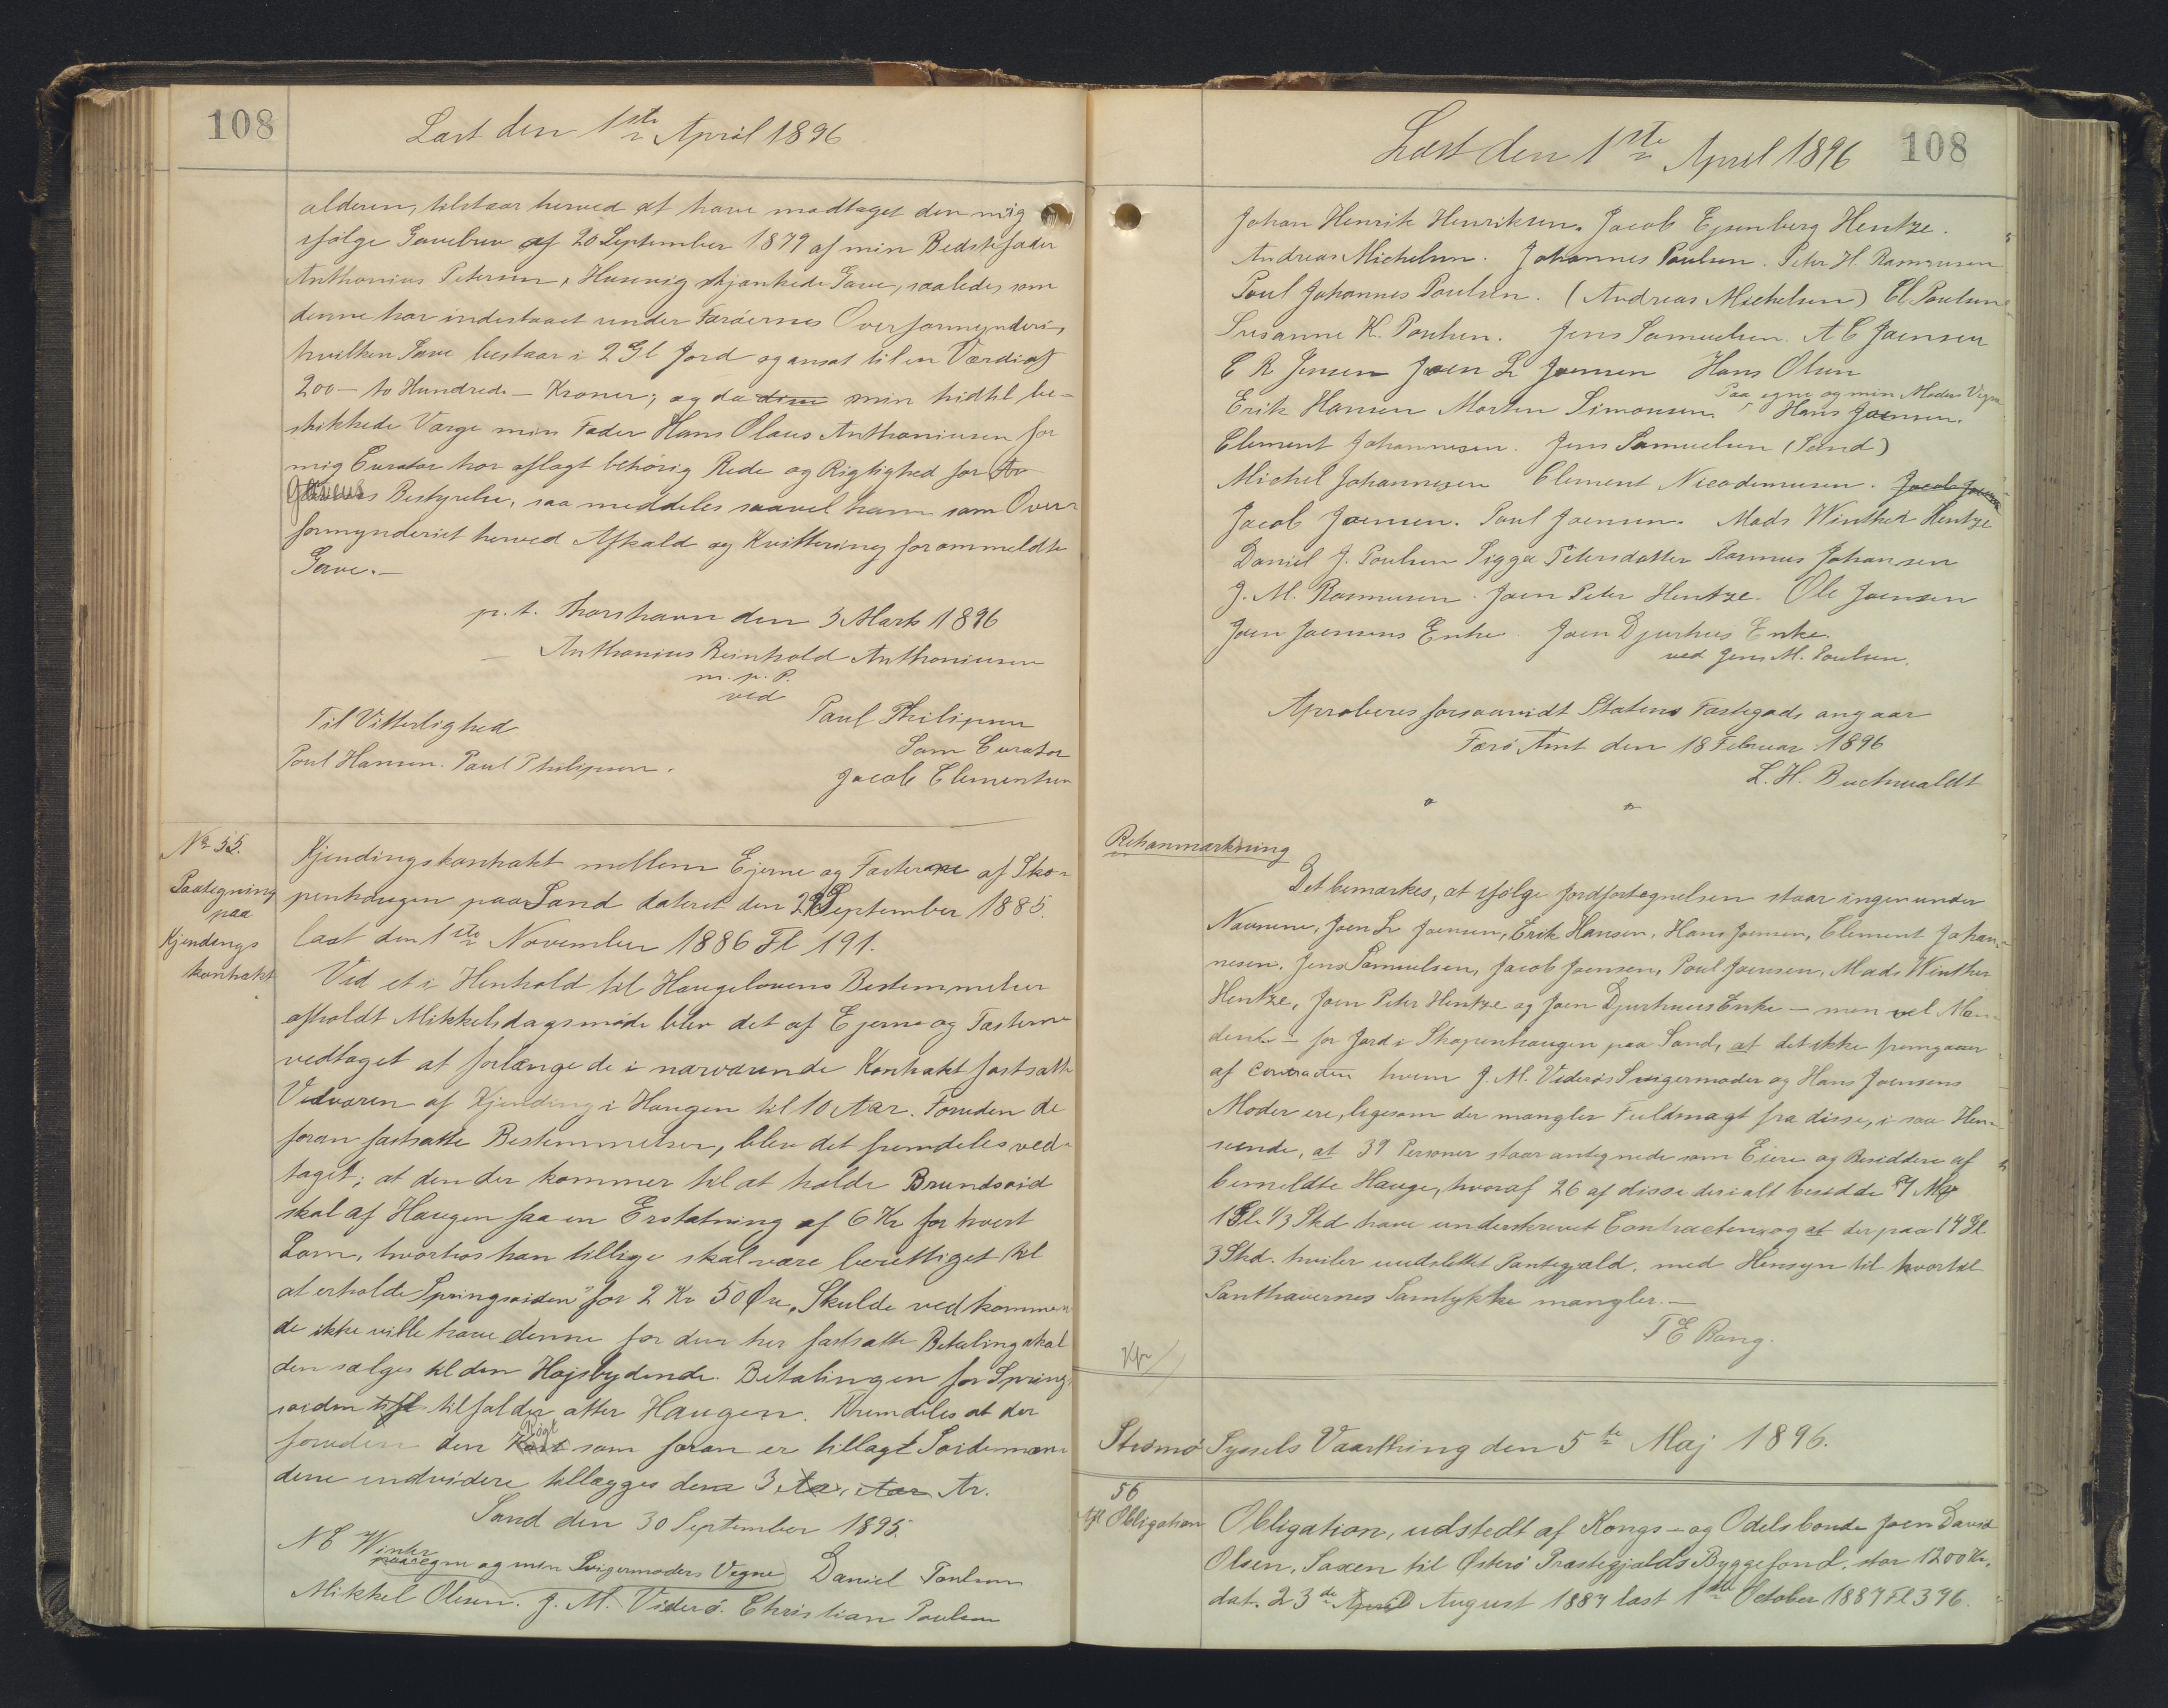 108
Læst den 1ste April 1896
alderen, tilstaar herved at have modtaget den mig
ifølge Gavebrev af 20 September 1879 af min Bedstefader
Anthonius Petersen, Husevig skjænkede Gave, saaledes som
denne har indestaaet under Færøernes Overformynderi,
hvilken Gave bestaar i 2 Gl Jord og ansat til en Værdi af
200 — to Hundrede — Kroner; og da disse min hidtil be-
skikkede Værge min Fader Hans Olaus Anthoniusen for
mig Curator har aflagt behørig Rede og Rigtighed for
Gavens Bestyrelse, saa meddeles saavel ham som Over-
formynderiet herved Afkald og Kvittering for ommeldte
Gave.—
p. t. Thorshavn den 3 Marts 1896
Anthonius Reinhold Anthoniusen
m. p. P.
ved
Til Vitterlighed Paul Philipsen
Som Curator
Poul Hansen. Paul Philipsen. Jacob Clementsen
No 55.
Paategning
paa
Kjendings
kontrakt
Kjendingskontrakt mellem Ejerne og Fæsterne af Sko-
penhaugen paa Sand dateret den 29 September 1885.
læst den 1ste November 1886 Fl 191.
Ved et i Henhold til Haugelovens Bestemmelser
afholdt Mikkelsdagsmøde blev det af Ejerne og Fæsterne
vedtaget at forlænge de i nærværende Kontrakt fastsatte
Vedvaren af Kjending i Haugen til 10 Aar. Foruden de
foran fastsatte Bestemmelser, blev det fremdeles ved-
taget; at den der kommer til at holde Brundsoid
skal af Haugen faa en Erstatning af 6 Kr for hvert
Lam, hvorhos han tillige skal være berettiget til
at erholde "Springsoiden" for 2 Kr 50 Øre, Skulde vedkommen
de ikke ville have denne for den her fastsatte Betaling skal
den sælges til den Højstbydende. Betalingen for Spring-
soiden tilfl tilfalder atter Haugen. Fremdeles at der
Røgt
foruden den Kost som foran er tillagt Soidemæn-
dene endvidere tillægges dem 3 Ær, Aar Ær.
Sand den 30 September 1895.
N E Winter
paa egne og min Svigermoders Vegne Daniel Poulsen
Mikkel Olesen. J. M. Viderø. Christian Poulsen
Læst den 1ste April 1896 108
Johan Henrik Henriksen. Jacob Ejsenberg Hentze.
Andreas Michelsen. Johannes Poulsen. Peter H. Rasmusen
Poul Johannes Poulsen. (Andreas Michelsen) Cl. Poulsen
Susanne K. Poulsen. Jens Samuelsen. A C Joensen
C R Jensen Joen Sr Joensen Hans Olsen
Paa egne og min Moders Vegne
Erik Hansen Morten Simonsen. Hans Joensen.
Clement Johannesen. Jens Samuelsen (Sand)
Michel Johannesen Clement Nicodemusen. Jacob Joensen
Jacob Joensen. Poul Joensen. Mads Winther Hentze
Daniel J. Poulsen Sigga Petersdatter Rasmus Johansen
J. M. Rasmusen. Joen Peter Hentze. Ole Joensen
Joen Joensens Enke. Joen Djurhus Enke.
ved Jens M. Poulsen.
Aproberes forsaavidt Statens Fæstegods angaar
Færø Amt den 18 Februar 1896
L. H. Buchwaldt
Retsanmærkning
Det bemærkes, at ifølge Jordfortegnelsen staar ingen under
Navnene, Joen Sr Joensen, Erik Hansen, Hans Joensen, Clement Johan-
nesen. Jens Samuelsen, Jacob Joensen, Poul Joensen, Mads Winther
Hentze, Joen Peter Hentze og Joen Djurhuus Enke — men vel
for Jord i Skopenhaugen paa Sand, at det ikke fremgaaer
af Contracten hvem J. M. Viderøs Svigermoder og Hans Joensens
Moder ere, ligesom der mangler Fuldmagt fra disse, i saa Hen-
seende, at 39 Personer staar antegnede som Eiere og Besiddere af
bemeldte Hauge, hvoraf 26 af disse der i alt besidde 57 Mk
1 Gl. 1/3 Skd have underskrevet Contracten, og at der paa 14 Gl
3 Skd. hviler uudslettet Pantegjæld. med Hensyn til hvortil
Panthavernes Samtykke mangler.—
T E Bang.
Strømø Syssels Vaarthing den 5te Maj 1896.
56
Afl Obligation
Obligation, udstedt af Kongs- og Odelsbonde Joen David
Olsen, Saxen til Østerø Præstegjælds Byggefond, stor 1200 Kr.
dat. 23de April August 1887 læst 1ste October 1887 Fl 396.